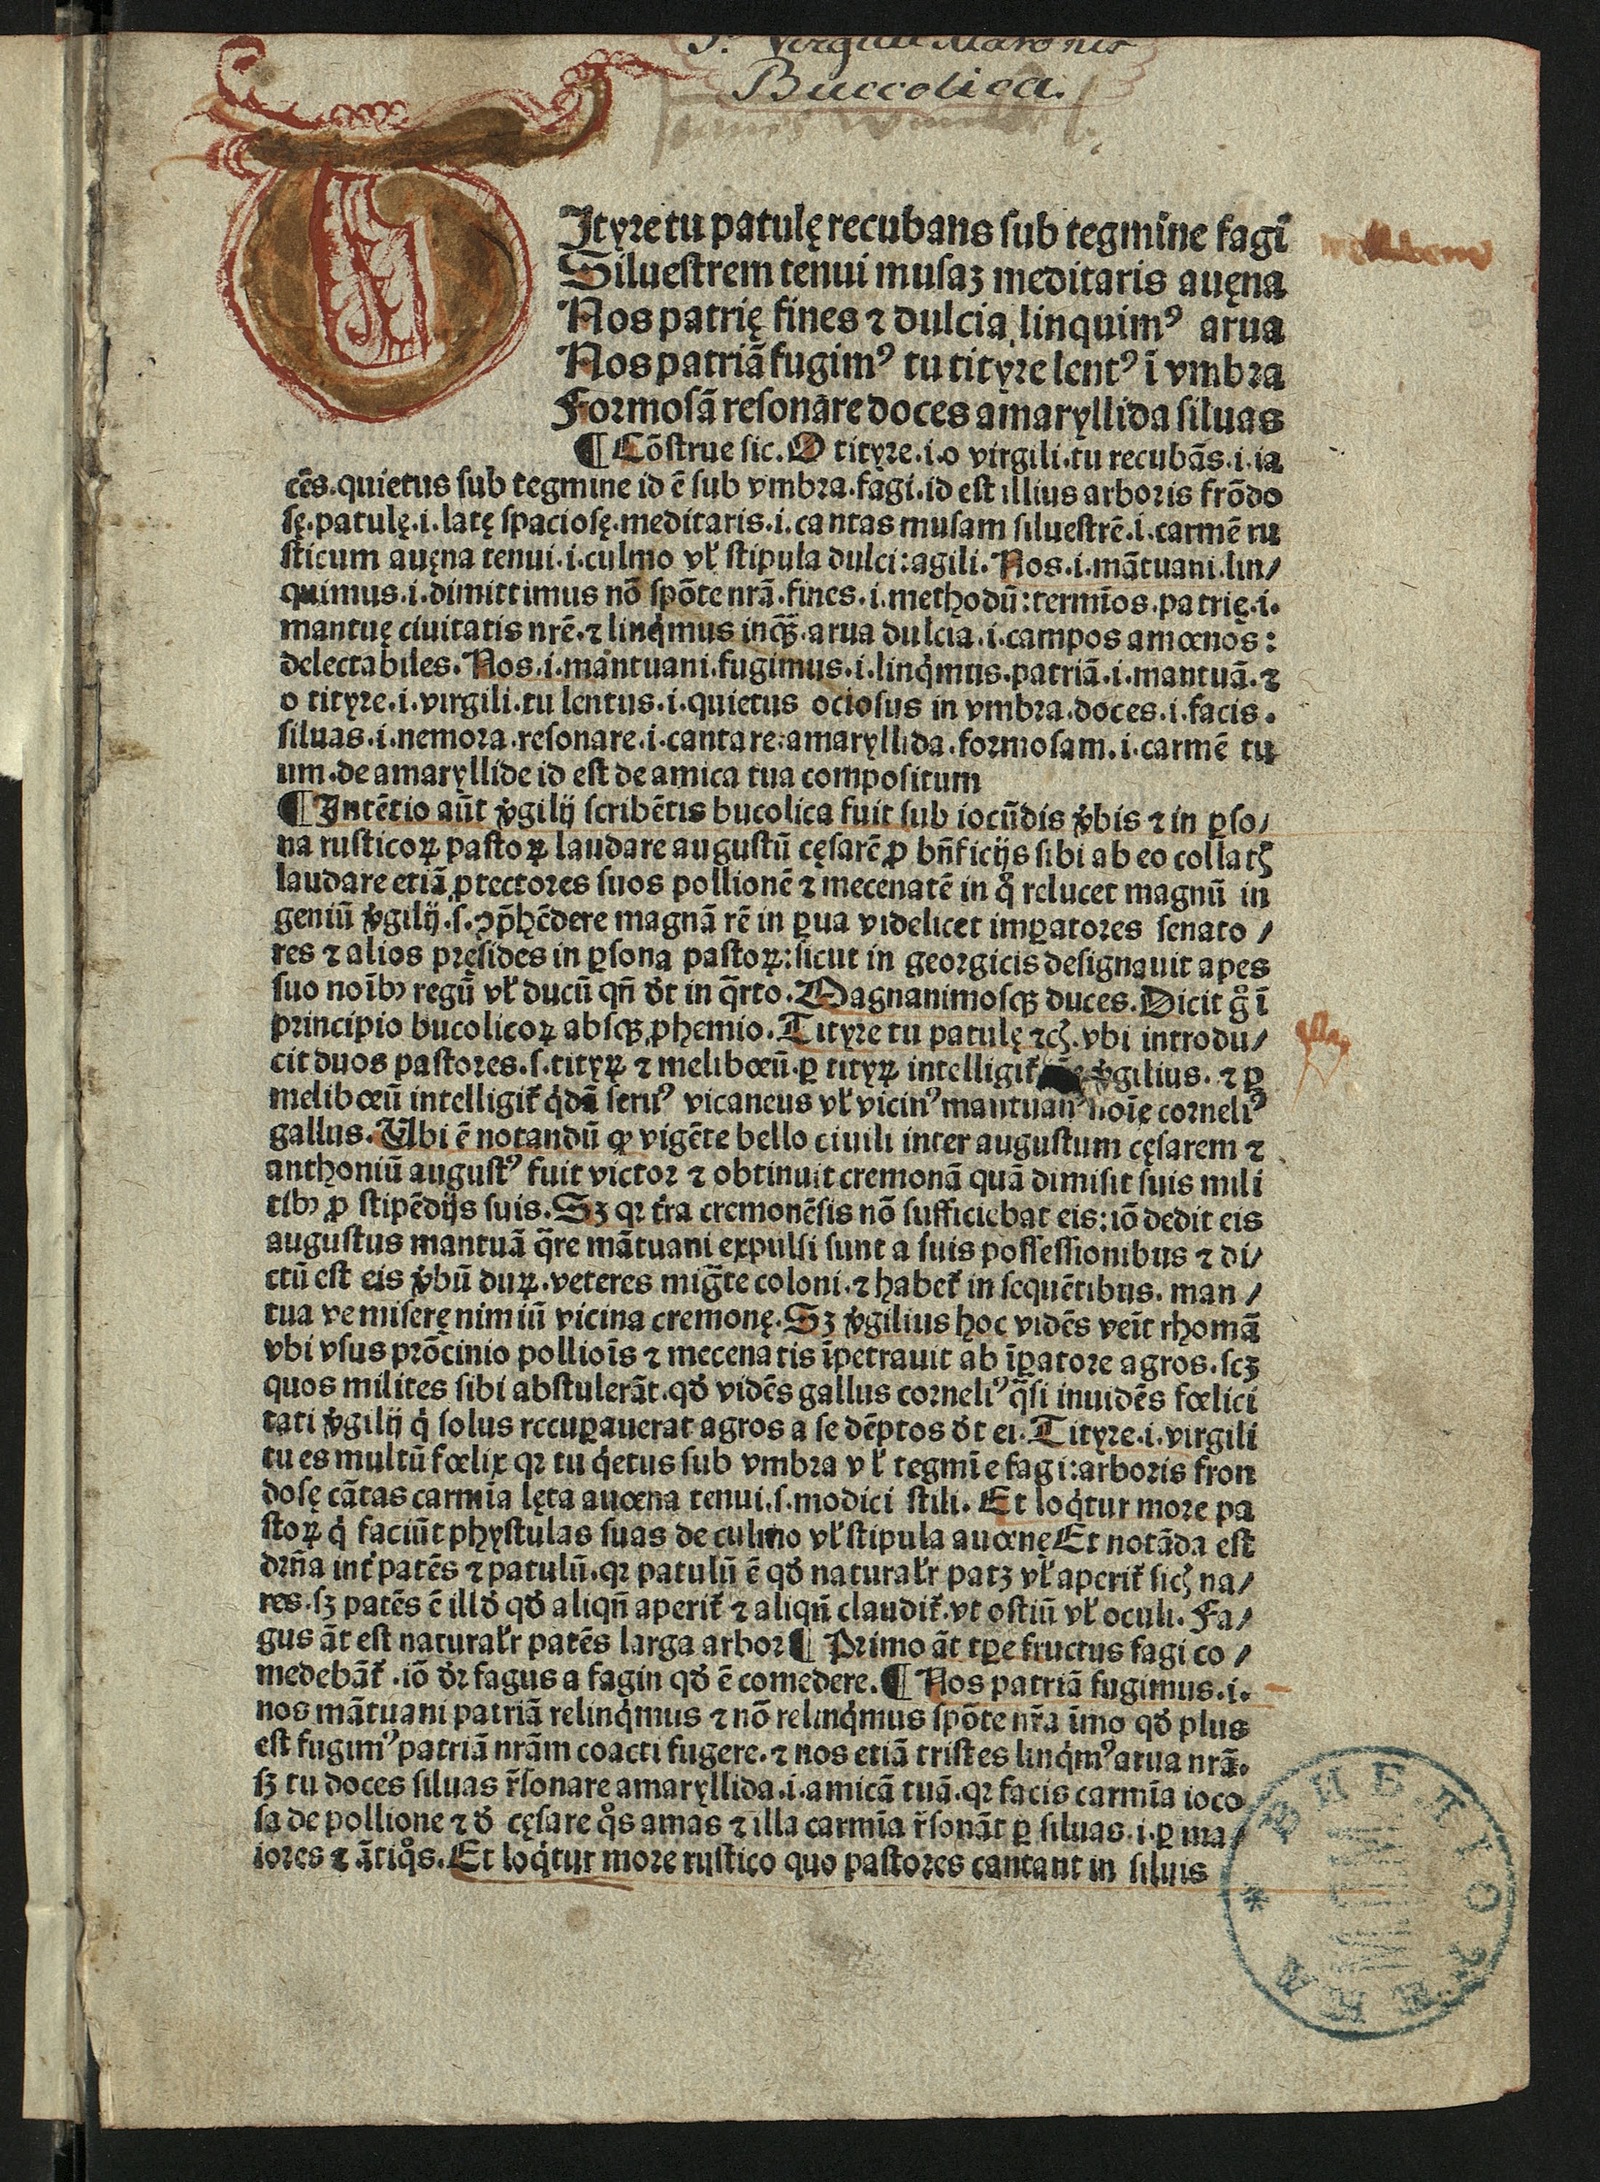 P. Virgilii Maronis
Buccolica.
Ityre tu patulę recubans sub tegmine fagi
Siluestrem tenui musaʒ meditaris auęna
Nos patrię fines ⁊ dulcia linquimꝰ arua
Nos patriã fugimꝰ tu tityre lentꝰ ĩ vmbra
Formosã resonare doces amaryllida siluas
¶ Cõstrue sic. O tityre .i. o virgili. tu recubãs .i. ia
cẽs. quietus sub tegmine id ẽ sub vmbra. fagi. id est illius arboris frõdo
sę. patulę .i. latę spaciosę. meditaris .i. cantas musam siluestrẽ .i. carmẽ ru
sticum auęna tenui .i. culmo vł stipula dulci: agili. Nos .i. mãtuani. lin/
quimus .i. dimittimus nõ spõte nrã. fines .i. methodũ: termĩos. patrię .i.
mantuę ciuitatis nrẽ. ⁊ linq̇mus inqꝫ̃. arua dulcia .i. campos amœnos:
delectabiles. Nos .i. mantuani. fugimus .i. linq̇mus. patriã .i. mantuã. ⁊
o tityre .i. virgili. tu lentus .i. quietus ociosus in vmbra. doces .i. facis.
siluas .i. nemora. resonare .i. cantare: amaryllida. formosam .i. carmẽ tu
um. de amaryllide id est de amica tua compositum
¶ Intẽtio aũt v̓gilij scribẽtis bucolica fuit sub iocũdis v̓bis ⁊ in ꝑso/
na rusticoꝝ pastoꝝ laudare augustũ cęsarẽ ꝓ bñficijs sibi ab eo collatꝭ
laudare etiã ꝓtectores suos pollionẽ ⁊ mecenatẽ in qͦ relucet magnũ in
geniũ v̓gilij .s. ꝯp̃hẽdere magnã rẽ in ꝑua videlicet imꝑatores senato/
res ⁊ alios pręsides in ꝑsona pastoꝝ: sicut in georgicis designauit apes
suo noĩbꝫ regũ vł ducũ qñ ðt in q̃rto. Magnanimosqꝫ duces. Dicit gͦ ĩ
principio bucolicoꝝ absqꝫ ꝓhemio. Tityre tu patulę ⁊cꝭ. vbi introdu/
cit duos pastores .s. tityꝝ ⁊ meliboeũ. ꝑ tityꝝ intelligit̃ v̓gilius. ⁊ ꝑ
meliboeũ intelligit̃ q̇dã seruꝰ vicaneus vł vicinꝰ mantuanꝰ noĩe corneliꝰ
gallus. Ubi ẽ notandũ ꝙ vigẽte bello ciuili inter augustum cęsarem ⁊
anthoniũ augustꝰ fuit victor ⁊ obtinuit cremonã quã dimisit suis mili
tibꝫ ꝓ stipẽdijs suis. Sꝫ qꝛ tr̃a cremonẽsis nõ sufficiebat eis: iõ dedit eis
augustus mantuã q̃re mãtuani expulsi sunt a suis possessionibus ⁊ di/
ctũ est eis v̓bũ duꝝ. veteres migr̃te coloni. ⁊ habet̃ in sequẽtibus. man/
tua ve miserę nimiũ vicina cremonę. Sꝫ v̓gilius hoc vidẽs veĩt rhomã
vbi vsus prõcinio pollioĩs ⁊ mecenatis ĩpetrauit ab ĩꝑatore agros. scꝫ
quos milites sibi abstulerãt. qð vidẽs gallus corneliꝰ q̃si inuidẽs fœlici
tati v̓gilij q̇ solus recuꝑauerat agros a se dẽptos ðt ei. Tityre .i. virgili
tu es multũ fœlix qꝛ tu q̇etus sub vmbra vł tegmĩe fagi: arboris fron
dosę cãtas carmĩa lęta auœna tenui .s. modici stili. Et loq̇tur more pa
stoꝝ q̇ faciũt phystulas suas de culmo vł stipula auœnę Et notãda est
drĩa int̓ patẽs ⁊ patulũ. qꝛ patulũ ẽ qð naturałr patꝫ vł aperit̃ sicꝭ na/
res. sꝫ patẽs ẽ illð qð aliqñ aperit̃ ⁊ aliqñ claudit̃. vt ostiũ vł oculi. Fa/
gus ãt est naturałr patẽs larga arbor ¶ Primo ãt tꝑe fructus fagi co/
medebãt̃. iõ ðr fagus a fagin qð ẽ comedere. ¶ Nos patriã fugimus .i.
nos mãtuani patriã relinq̇mus ⁊ nõ relinq̇mus spõte nr̃a ĩmo qð plus
est fugimꝰ patriã nrãm coacti fugere. ⁊ nos etiã tristes linq̇mꝰ arua nrã.
sꝫ tu doces siluas r̃sonare amaryllida .i. amicã tuã. qꝛ facis carmĩa ioco
sa de pollione ⁊ ð cęsare qͦs amas ⁊ illa carmĩa r̃sonãt ꝑ siluas .i. ꝑ ma/
iores ⁊ ãtiqͦs. Et loq̇tur more rustico quo pastores cantant in siluis